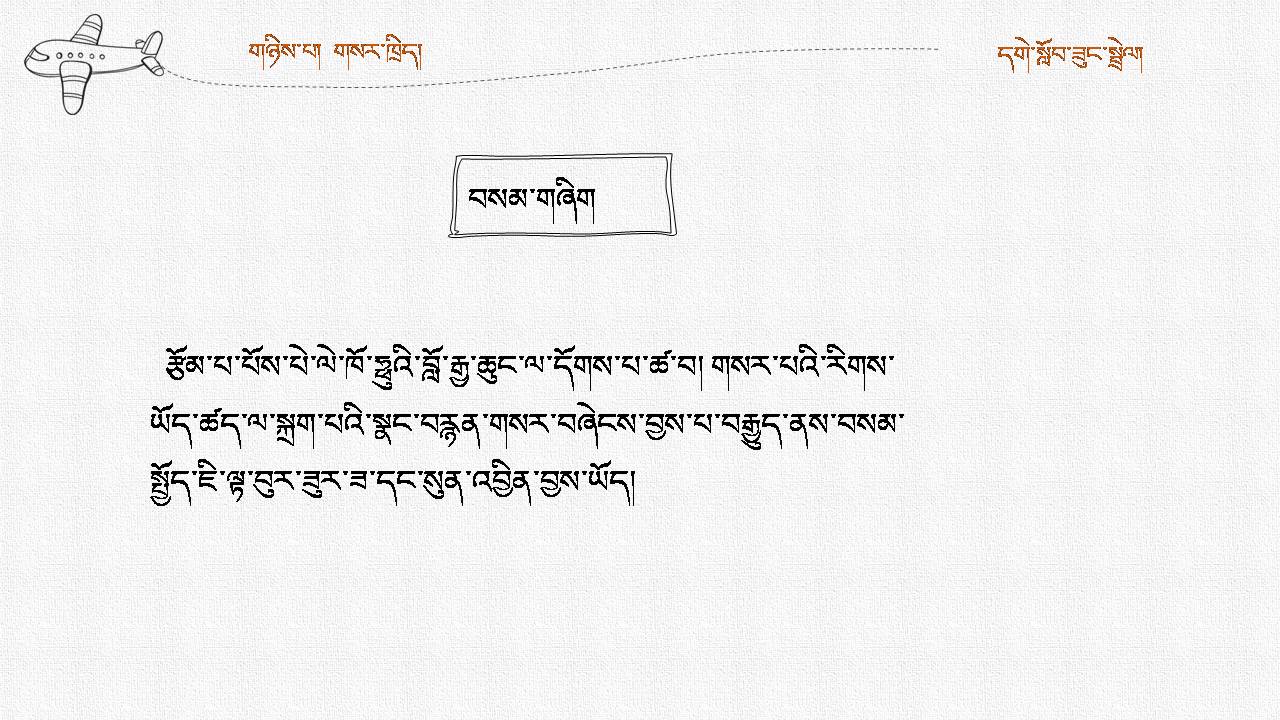 གཉིས་པ། གསར་ཁྲིད།
དགེ་སློབ་ཟུང་སྦྲེལ།
བསམ་གཞིག
རྩོམ་པ་པོས་པེ་ལེ་ཁོ་ཧྥུའི་བློ་རྒྱ་ཆུང་ལ་དོགས་པ་ཚ་བ། གསར་པའི་རིགས་
ཡོད་ཚད་ལ་སྐྲག་པའི་སྣང་བརྙན་གསར་བཞེངས་བྱས་པ་བརྒྱུད་ནས་བསམ་
སྤྱོད་ཇི་ལྟ་བུར་ཟུར་ཟ་དང་སུན་འབྱིན་བྱས་ཡོད།